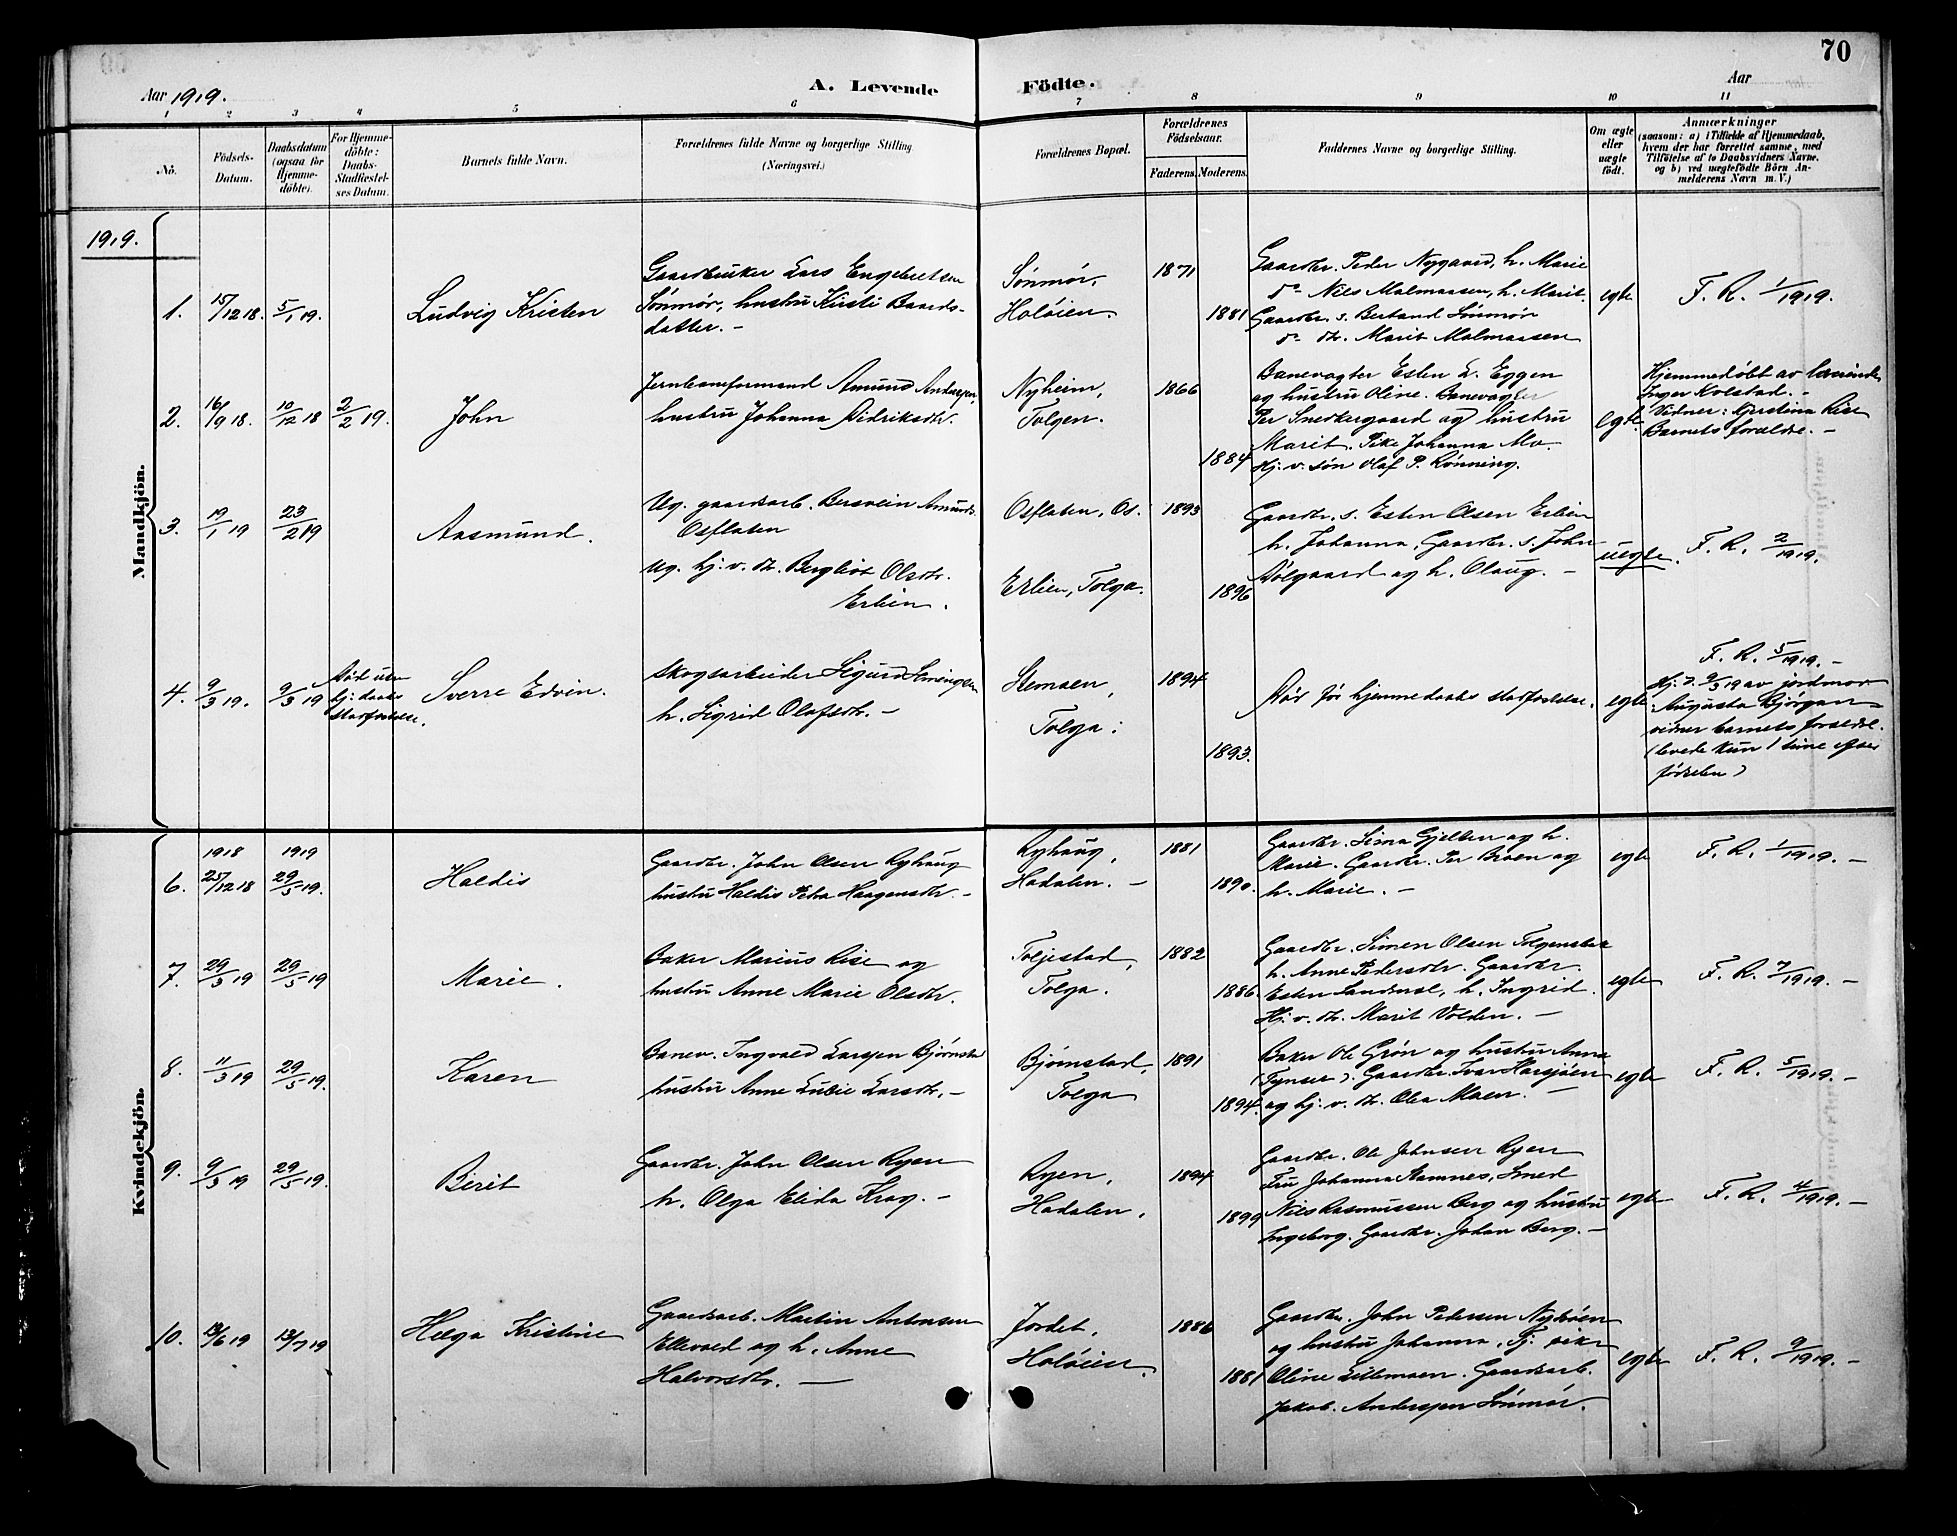 70
Aar 1919.
A. Levende Födte.
Aar
1 2 3 4 5 6 7 8 9 10 11
No.
Födsels-Datum.
Daabsdatum (ogsaa for Hjemme-döbte).
For Hjemme-döbte: Daabs-Stadfæstel-ses Datum.
Barnets fulde Navn.
Forældrenes fulde Navne og borgerlige Stilling
(Næringsvei.)
Forældrenes Bopæl.
Forældrenes Födselsaar.
Faderens. Moderens.
Faddernes Navne og borgerlige Stilling.
Om ægte eller uægte födt.
Anmærkninger
(saasom: a) i Tilfælde af Hjemmedaab,
hvem der har forrettet samme, med
Tilföielse af to Daabsvidners Navne.
og b) ved uægtefödte Börn An-
melderens Navn m. V.)
1919.
Mandkjön.
1. 15/12 18. 5/1 19.
Ludvig Kristen
Gaardbruker Lars Engebretsen
Sönmör, hustru Kirsti Baards-
datter. -
Sönmör,
Holöien.
1871
1881
Gaardbr. Peder Nygaard, h. Marie
do Nils Malmaasen, h. Marit.
Gaardbr. s. Bertand Sönmör
do dtr. Marit Malmaasen
egte
F. R. 1/1919.
2. 16/9 18. 10/12 18 2/2 19.
John
Jernbaneformand Amund Andersen,
hustru Johanna Didriksdtr.
Nyheim,
Tolgen.
1866
1884
Banevogter Esten L. Eggen
og hustru Oline. Banevogter
Per Snedkergaard og hustru
Marit. Pike Johanna Mo.
Hj. v. søn Olaf P. Rönning.
egte.
Hjemmedöbt av
Inger Kolstad. -
Vidner: Kjerstina Rise
Barnets forældre. -
3. 19/1 19 23/2 19
Aasmund.
Ug. gaardsarb. Bersvein Amunds.
Osflaten
Ug. hj. v. dtr. Bergliot Olsdtr.
Erlien.
Osflaten, Os.
Erlien, Tolga.
1893
1896
Gaardbr. s. Esten Olsen Erlien
h. Johanna, Gaardbr. s. John
Dölgaard og h. Olaug. -
uegte.
F. R. 2/1919.
4. 9/3 19. 9/3 19
Död uten
hj: daabs
stadfestelse.
Sverre Edvin.
Skogsarbeider Sigurd Simingsen
h. Sigrid Olafsdtr. -
Stemoen,
Tolga.
1894
1893.
Död før hjemmedaabs stadfestelse.
egte
F. R. 5/1919. -
Hj. d. 9/3 19 av jordmor
Augusta Björgan
vidner barnets forældre.
(levede kun 1 time efter
födselen)
Kvindekjön.
6. 1918 25/12 18 1919 29/5 19.
Haldis
Gaardbr. John Olsen Ryhaug
hustru Haldis Petra Haagensdtr. -
Ryhaug,
Hodalen. -
1881
1890.
Gaardbr. Sima Gjelten og h.
Marie. Gaardbr. Per Broen og
h. Marie. -
egte
F. R. 1/1919. -
7. 29/3 19 29/5 19
Marie.
Baker Marius Rise og
hustru Anne Marie Olsdtr.
Toljestad,
Tolga.
1882
1886.
Gaardbr. Simen Olsen Tolgensbak
h. Anne Pedersdtr. Gaardbr.
Esten Sandnesl, h. Ingrid.
Hj. v. dtr. Marit Volden. -
egte
F. R. 7/1919. -
8. 11/3 19 29/5 19.
Karen
Banev. Ingvald Larssen Bjørnstad
hustru Anne Lubie Larsdtr. -
Bjørnstad
Tolga
1891
1894.
Baker Ole Grön og hustru Anna
(Tynset). Gaardbr. Ivar Harsjöen
og hj. v. dtr. Olea Moen. -
egte
F. R. 5/1919. -
9. 9/3 19 29/5 19.
Birit
Gaardbr. John Olsen Ryen
h. Olga Elida Krog. -
Ryen,
Hodalen.
1894
1899
Gaardbr. Ole Johnsen Ryen
Fru Johanna Stamnes, Smed
Nils Rasmussen Berg og hustru
Ingeborg. Gaardbr. Johan Berg. -
egte
F. R. 4/1919. -
10. 6 19 13/7 19
Helga Kristine
Gaardsarb. Martin Antonsen
Ellevold og h. Anne
Halvorsdtr. -
Jordet,
Holöien.
1886
1881
Gaardbr. John Pedersen Nyhöen
og hustru Johanna, Tj. pike
Oline Lillemoen. Gaardsarb.
Jakob. Anderssen Sönmör.
egte
F. R. 9/1919. -